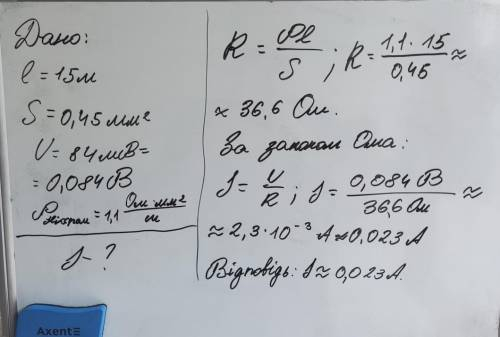 Дано:
l = 15м
S = 0,45 мм²
U = 84мВ =
= 0,084 В
ρніхром = 1,1 Ом мм²/м
J - ?
R = ρl/S ; R = 1,1 · 15/0,45 ≈
≈ 36,6 Ом.
За законом Ома:
J = U/R ; J = 0,084 В/36,6 Ом ≈
≈ 2,3·10⁻³ А ≈ 0,023 А
Відповідь: J ≈ 0,023А.
Axent